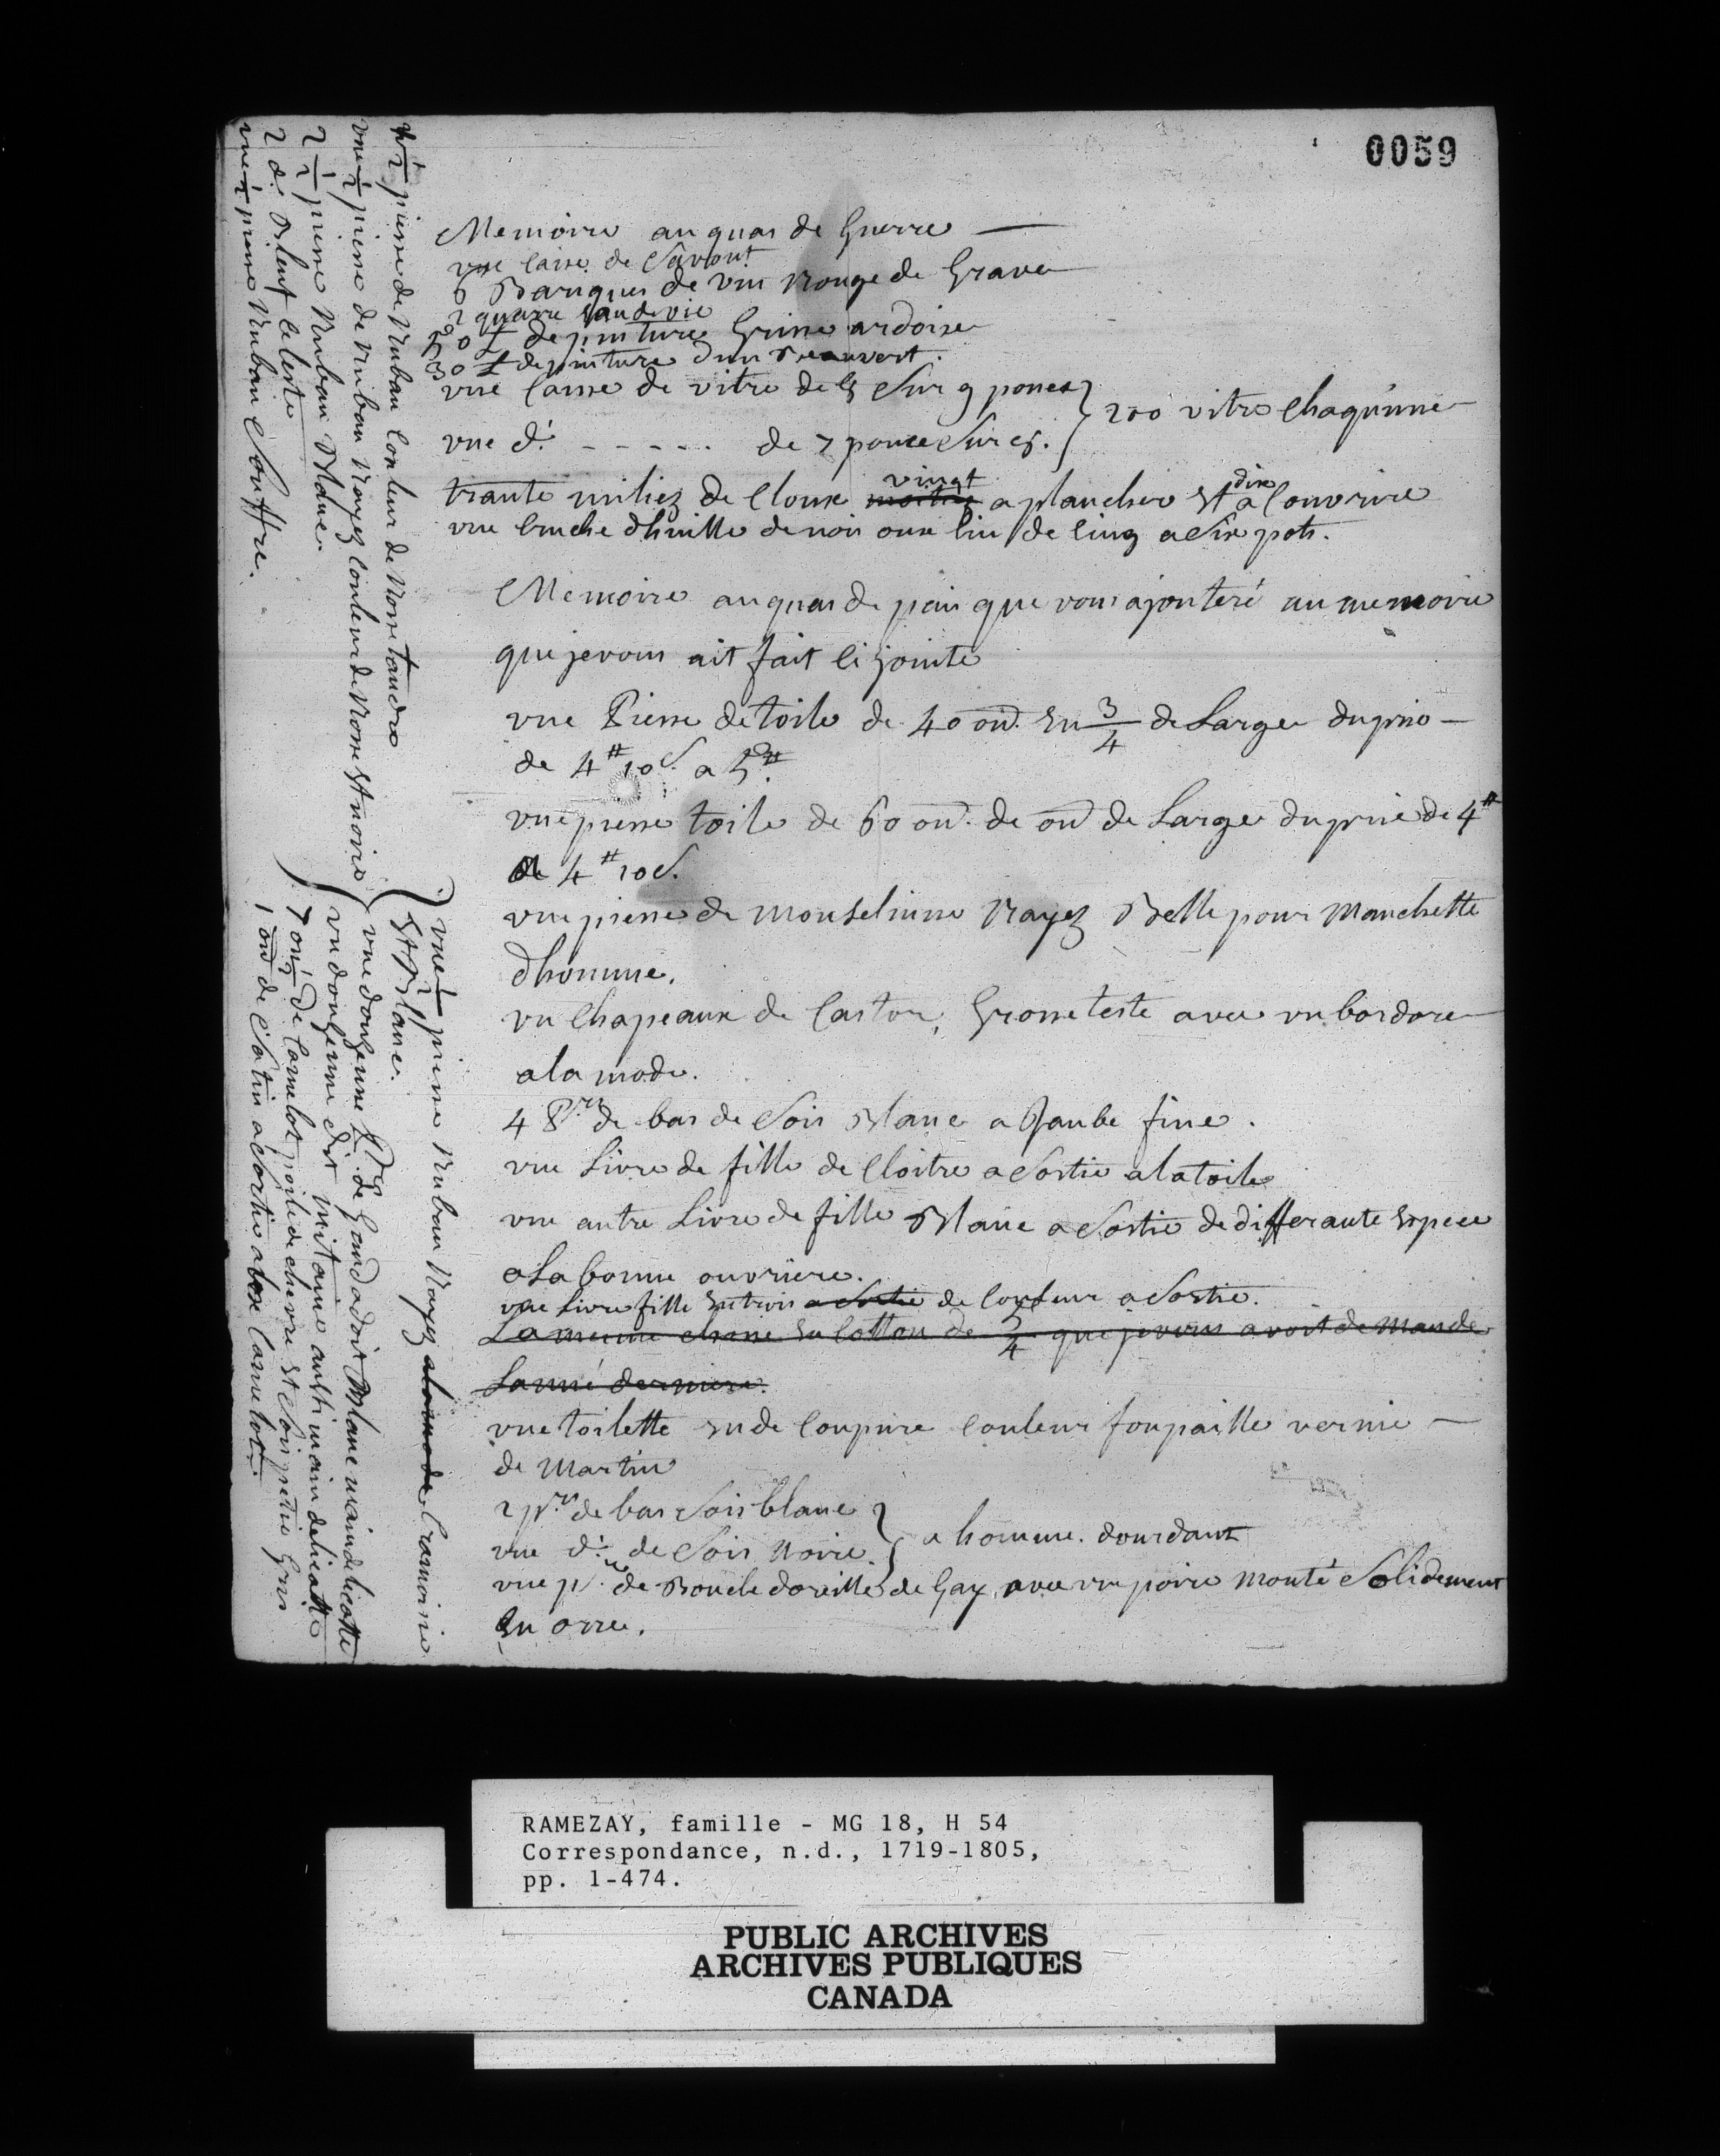 0059
Memoire au quas de Guerre —
vne Caisse de Savont
6 Bariques de vin Rouge de Grave
2 quarre Eau de vie
50 ₶ de pinture Grise ardoise
30 ₶ de pinture dun Beau vert.
vne Caisse de vitre de 8 Sur 9 pouces } 200 vitre Chaqu'une
vne d.o - - - - - de 7 pouce Sur 6.
trante miliez de Cloux vingt a plancher Et dix a Couvrire
vne Cruche dhuille de noix oux lin de Cinq a Six pots.
Memoire au quas de paix que vous ajouteré au memoire
que je vous ait fait Ci jointe
vne Piesse de toile de 40 on. En 3/4 de Large du prix —
de 4# 10 s. a 5#
vne piesse toile de 60 on. de on de Large du prix de 4#
a 4# 10 s.
vne piesse de mouseline Rayez Belle pour manchette
dhomme.
vn Chapeaux de Castor, Grosse teste avec vn bordore
a la mode.
4 P.res de bas de Sois Blanc a Jambe fine.
vne Livre de fille de Cloitre a Sortie a la toile
vne autre Livre de fille Blanc a Sortie de differante Espece
a La bonne ouvriere.
vne Livre fille En trois a Sortie de Couleur a Sortie.
La meme chosse En Cotton de 3/4 que je vous avoit de mande
Lanné derniere.
vne toilette En de Coupure Couleur fon paille vernie —
de Martin
2 p.res de bas Sois blanc } a homme. dourdant
vne d.o de Sois Noire.
vne p.re de Boucle doreille de Gay avec vne poire monté Solidement
En orre.
1/2 piesse de Ruban Couleur de Rosse tandre
vne 1/2 piesse de Ruban Rayez Couleur de Rosse Et noire
2 1/2 piesse Ruban Blanc.
2 d.o Bleuf Celeste
vne 1/2 piesse Ruban Souffre.
vne 1/2 piesse Ruban Rayez a la mode Cramoisie
Et Blanc.
vne dougenne P.res de Gand a doit Blanc main delicatte
vn dougenne dit mitaine aussi main delicatte
7 on 1/2 de Camelot poile de chevre Et Sois petit Gris
1 on de Satin a Sortie a vose Camelot.
RAMEZAY, famille - MG 18, H 54
Correspondance, n.d., 1719-1805,
pp. 1-474.
PUBLIC ARCHIVES
ARCHIVES PUBLIQUES
CANADA